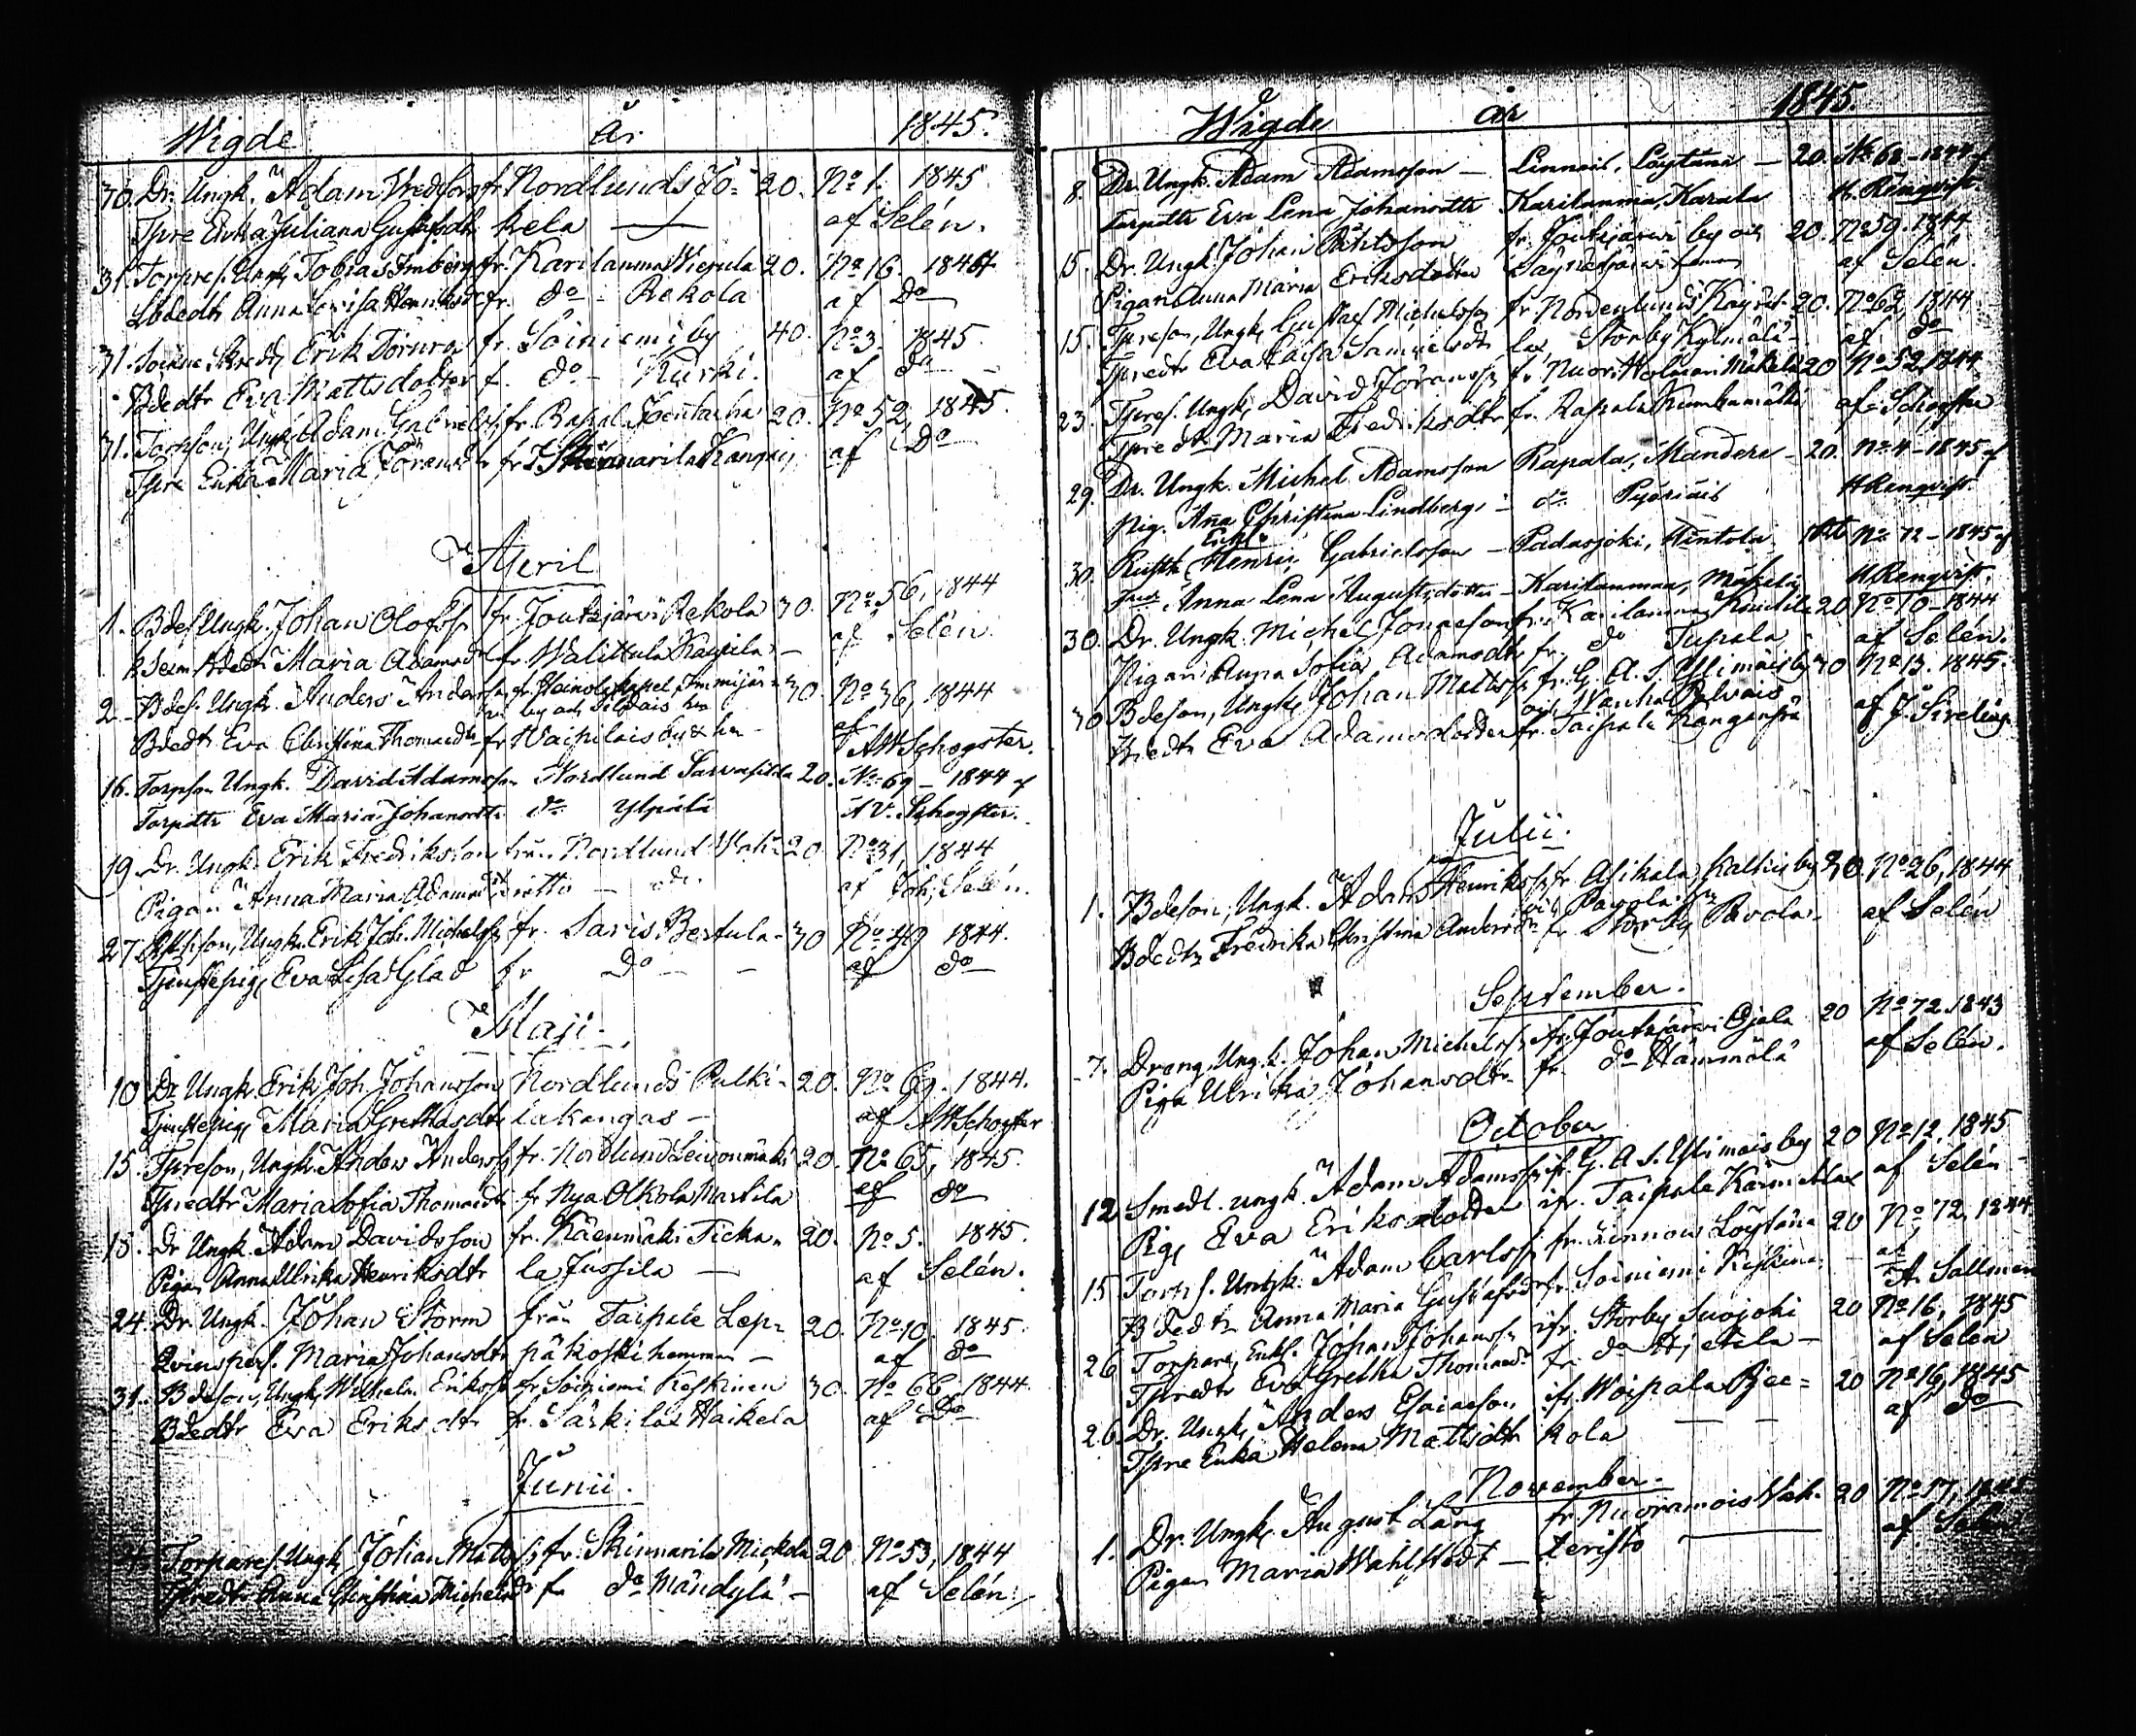 Wigde år 1845.
30. Dr. Ungk. Adam Wredforss fr Nordlunds Jo- 20. No 1. 1845
Tpre Enka Juliana Gustafsdtr kela — af Selén.
31. Torpres. Ungk. Tobias Imberg fr. Karilanmaa Wiepula 20. No 16. 1844
Anna Lovisa Henriksdtr fr. do - Rekola af Do
31. Erik Törnroos fr. Soiniemi by 40. No 3. 1845.
Bdedtr Eva Mattsdotter f. do - Kurki. af do
31. Torpson, Ungk. Adam Gabrielss. fr. Rapala 20. No 52, 1845.
Tpre Enka Maria Göransdr fr Skinnarila Kangas af Do
April
1. Bdes. Ungk. Johan Olofss. fr. Joutsjärvi Rekola 30. No 56, 1844
Maria Adamsdr fr. Walittula Kaupila — af Selén.
2. Bdes. Ungk. Anders Anderss. fr. Heinola Kapel Immijär- 30. No 36, 1844
vi by och
Bdedtr Eva Christina Thomasdtr fr Waipilais by & hn af AW Schogster.
16. Torpson Ungk. David Adamsson Nordlund Sarvasilda 20. No 69 - 1844 af
Torpdtr Eva Maria Johansdtr do Ylpälä A W. Schogster.
19. Dr. Ungk. Erik Fredriksson från Nordlund 20. No 31, 1844
Pigan Anna Maria Adamsdtr ditto — do. af Joh. Selén.
27. Ungk. Erik Joh. Michelss. fr. Saris Bertula - 30 No 49 1844.
Tjenstepig. Eva Lisa Glad fr do — af do
Maji.
10 Dr Ungk. Erik Joh. Johansson Nordlunds Pulki- 20. No 69. 1844.
Tjenstepig. Maria Grethasdtr lakangas — af AW Schogster
15. Tpreson, Ungk. Anders Anderss. fr. Nordlund Leivonmäki 20. No 65, 1845.
Tpredtr Maria Sofia Thomasdtr fr Nya Olkola Martila af do
15. Dr Ungk. Adam Davidsson fr. Käenmäki Ticka- 20. No 5. 1845.
Pigan Anna Ulrika Henriksdtr la Jussila — af Selén.
24. Dr. Ungk. Johan Storm från Taipale Lep- 20. No 10. 1845.
Qvinspers. Maria Johansdtr päkoski hemman — af do
31. Bdeson, Ungk. Wilhelm Erikss. fr Soiniemi Keskinen 30. No 66, 1844.
Bdedtr Eva Eriksdtr fr. Särkilax Haikela af Do
Junii.
Torpares. Ungk. Johan Matss. fr. Skinnarila Mickola 20 No 53, 1844
Tpredtr Anna Christina Michelsdr fr do Mändylä - af Selén.
Wigde år 1845.
8. Dr. Ungk. Adam Adamsson — Linnais, Löytänä — 20. No 68 - 1844 af
Torpdtr Eva Lena Johansdtr Karilanmaa, Karala H. Renqvist.
15. Dr. Ungk. Johan fr. Joutsjärvi by och 20. No 59. 1844
Pigan Anna Maria Eriksdotter af Selén.
15. Tpreson, Ungk. Gustaf Michelsson fr Nordenlunds 20. No 62, 1844
Tpredtr Eva Caisa Samuelsdtr Storby Kylmälä - af do
23. Tpres. Ungk. David Göranss. fr. Nuoramois Mäkelä 20 No 52, 1844
Tpredtr Maria Fredriksdtr fr. Rapala af Schogster
29. Dr. Ungk. Michel Adamsson Rapala, Mandere - 20. No 4 - 1845 af
Pig. Anna Christina Lindberg - do Pyöriäis H Renqvist.
Enkl.
30. Henric Gabrielsson — Padasjoki, Hintola No 72 - 1845 af
Anna Lena Augustsdotter - Karilanmaa, Mäkelä H. Renqvist.
30. Dr. Ungk. Michel Jonaeson fr. Karilanmaa 20 No 10 - 1844
Pigan Anna Sofia Adamsdtr fr. do Tupala af Selén.
30 Bdeson, Ungk. Johan Mattss. fr. G. A. S. Ylimais by 30 No 13. 1845.
och Wanha
Bdedtr Eva Adamsdotter fr. Taipale Kanganpää af J. Sireliuss
Julii.
1. Bdeson, Ungk. Adam Henrikss. fr. Asikala, Kalkis by 30. No 26, 1844
och Pavola hn
Bdedtr Fredrika Christina Andersdtr fr Storby Pavola. af Selén
September.
7. Dreng, Ungk. Johan Michelss. fr. Joutsjärvi Ojala 20 No 72. 1843
Piga Ulrika Johansdtr fr do Hämmälä af Selén.
October
12 Smedl. Ungk. Adam Adamss. ifr. G. A. S. Ylimais by 20 No 12, 1845
Pig. Eva Eriksdotter ifr. Taipale af Selén
15 Torps. Ungk. Adam Carlss. fr. Linnais Löytäna 20 No 72, 1844
Bdedtr Anna Maria Gustafsdr fr. Soiniemi Keskinen — af A. Sallmen
26 Torpare, Enkl. Johan Johanss. ifr. Storby Suojoki 20 No 16, 1845
Tpredtr Eva Gretha Thomasdr fr. do — af Selén
26. Dr. Ungk. Anders Esaiasson ifr. Woipala Rje- 20 No 16, 1845
Tpre Enka Helena Mattsdtr kola — — af do
November.
1. Dr. Ungk. August Lång fr Nuoramois Wäh- 20 No 17, 1845
Pigan Maria Wahlstedt — teristö — af Selén